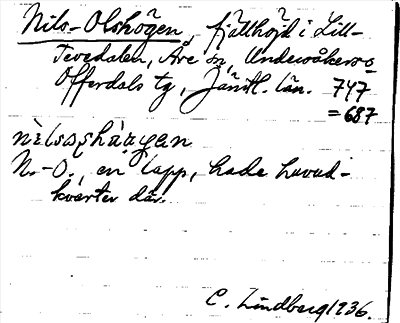 Nils-Olshögen, fjällhöjd i Lill-
Tevedalen, Åre sn, Undersåkers o
Offerdals tg, Jämtl. län. 747
=687
N.-O., en lapp, hade huvud-
kvarter där.
C. Lindberg 1936.